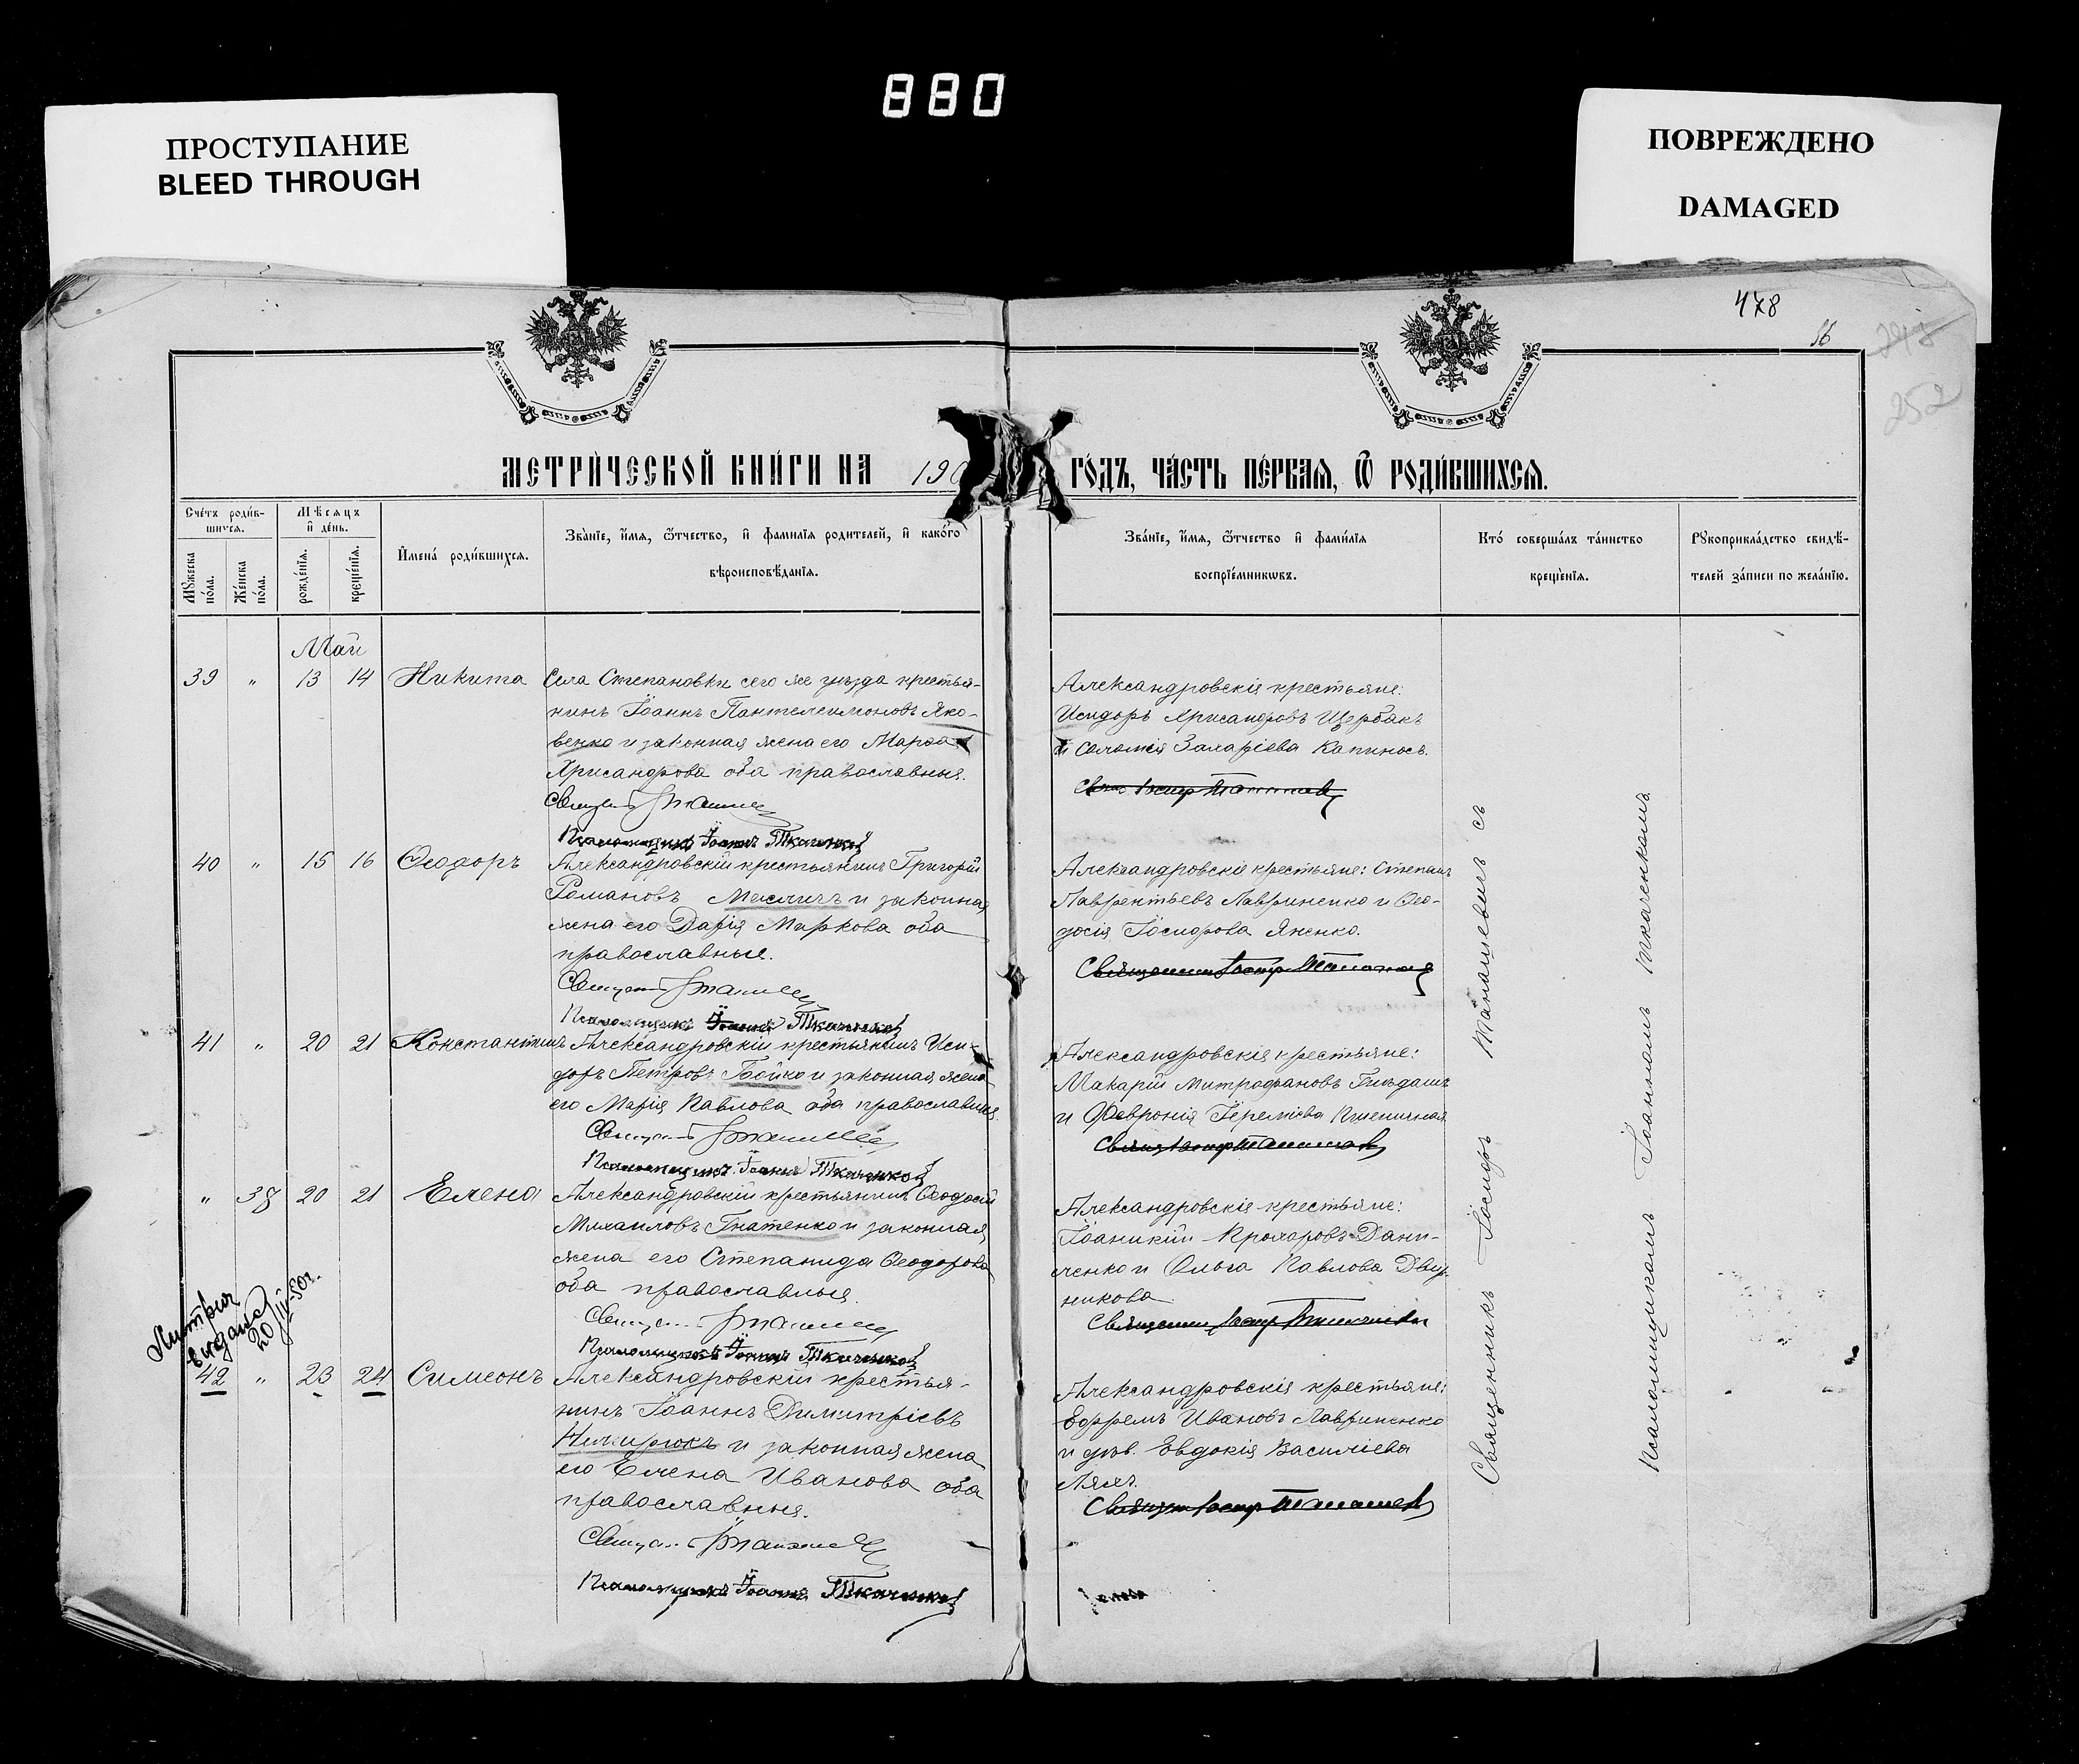 880
ПРОСТУПАНИЕ
BLEED THROUGH
ПОВРЕЖДЕНО
DAMAGED
478
56
252
МЕТРИ́ЧЕСКОЙ КНИ́ГИ НА 190
ГО́ДЪ, ЧА́СТЬ ПЕ́РВАѦ, Ѿ РОДИ́ВШИХСѦ.
Сче́тъ роди́в-
шихсѧ.
Мꙋ́жеска по́ла.
Же́нска по́ла.
Мѣ́сѧцъ
и҆ де́нь.
рожде́нїѧ.
креще́нїѧ.
И҆мена̀ роди́вшихсѧ.
Зва́нїе, и҆́мѧ, ѻ҆́тчество, и҆ фами́лїѧ роди́телей, и҆ како́гѡ
вѣроисповѣ́данїѧ.
Зва́нїе, и҆́мѧ, ѻ҆́тчество и҆ фами́лїѧ
воспрїе́мникѡвъ.
Кто̀ соверша́лъ та́инство
креще́нїѧ.
Рꙋкоприкла́дство свидѣ́-
телей за́писи по жела́нїю.
Май
39 " 13 14 Никита
Села Степановки сего же уѣзда крестья-
нинъ Іоаннъ Пантелеимоновъ Яко-
венко и законная жена его Марѳа
Хрисанфова оба православные.
Псаломщикъ Іоаннъ Ткаченко
Александровскіе крестьяне:
Исидоръ Хрисанфовъ Щербакъ
и Соломія Захаріева Капиносъ.
40 " 15 16 Ѳеодоръ
Александровскій крестьянинъ Григорій
Романовъ и законная
жена его Дарія Маркова оба
православные.
Псаломщикъ Іоаннъ Ткаченко
Александровскіе крестьяне: Степанъ
Лаврентьевъ Лавриненко и Ѳео-
досія Іосифова Яненко.
41 " 20 21 Константинъ
Александровскій крестьянинъ Иси-
доръ Петровъ Бойко и законная жена
его Марія Павлова оба православные.
Псаломщикъ Іоаннъ Ткаченко
Александровскіе крестьяне:
Макарій Митрофановъ
и Февронія Іереміева Пшеничная
" 38 20 21 Елена
Александровскій крестьянинъ Ѳеодосій
Михаиловъ Гнатенко и законная
жена его Степанида Ѳеодорова
оба православные.
Псаломщикъ Іоаннъ Ткаченко
Александровскіе крестьяне:
Іоаникій Прохоровъ Дани-
ченко и Ольга Павлова Двор-
никова
Метрич
выдана
20/II-50г.
42 " 23 24 Симеонъ
Александровскій крестья-
нинъ Іоаннъ Димитріевъ
и законная жена
его Елена Иванова оба
православные.
Псаломщикъ Іоаннъ Ткаченко
Александровскіе крестьяне:
Ефремъ Ивановъ Лавриненко
и дѣв. Евдокія Василіева
Ляхъ.
Священникъ Іосифъ Манашевичъ съ
псаломщикомъ Іоанномъ Ткаченкомъ